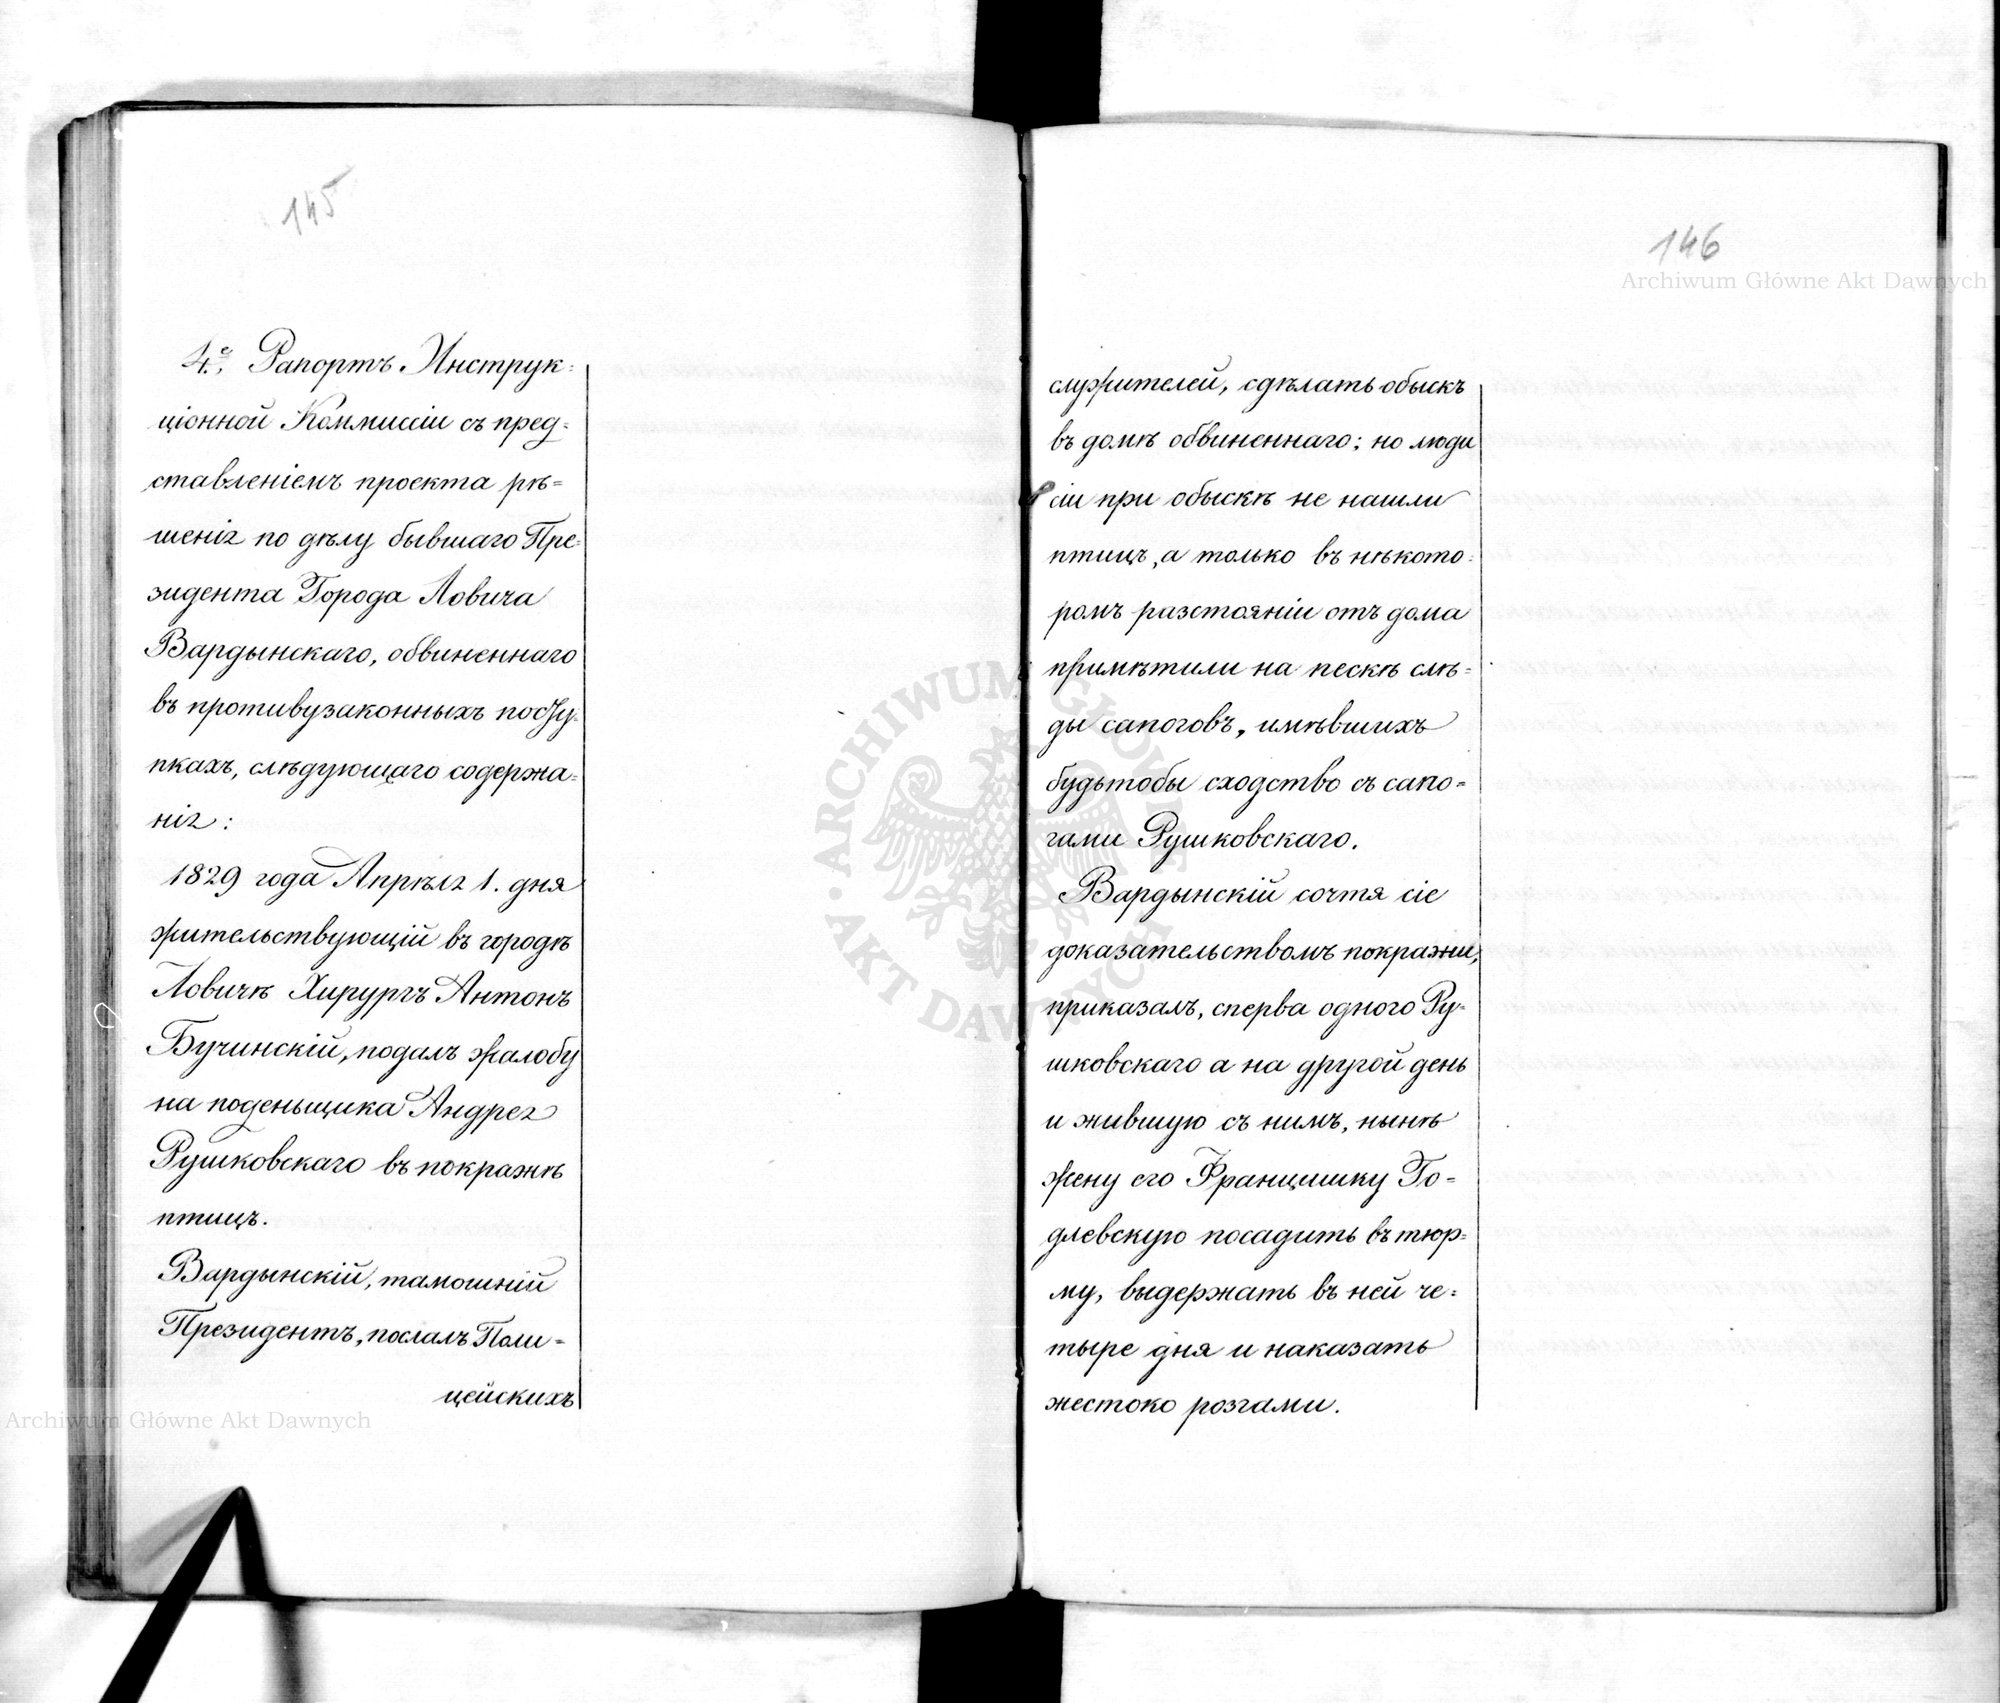 145
4.е, Рапортъ Инструк=
ціонной Коммиссіи съ пред=
ставленіемъ проекта рѣ=
шенія по дѣлу бывшаго Пре=
зидента Города Ловича
Вардынскаго, обвиненнаго
въ противузаконныхъ посту=
пкахъ, слѣдующаго содержа=
нія:
1829 года Апрѣля 1. дня
жительствующій въ городѣ
Ловичѣ Хирургъ Антонъ
Бучинскій, подалъ жалобу
на поденьщика Андрея
Рушковскаго въ покражѣ
птицъ.
Вардынскій, тамошній
Президентъ, послалъ Поли=
цейскихъ
146
служителей, сдѣлать обыскъ
въ домѣ обвиненнаго; но люди
сіи при обыскѣ не нашли
птицъ, а только въ нѣкото=
ромъ разстояніи отъ дома
примѣтили на пескѣ слѣ=
ды сапоговъ, имѣвшихъ
будьтобы сходство съ сапо=
гами Рушковскаго.
Вардынскій сочтя сіе
доказательствомъ покражи,
приказалъ, сперва одного Ру=
шковскаго а на другой день
и жившую съ нимъ, нынѣ
жену его Францишку Го=
длевскую посадить въ тюр=
му, выдержать въ ней че=
тыре дня и наказать
жестоко розгами.
Archiwum Główne Akt Dawnych
Archiwum Główne Akt Dawnych
ARCHIWUM GŁÓWNE · AKT DAWNYCH ·